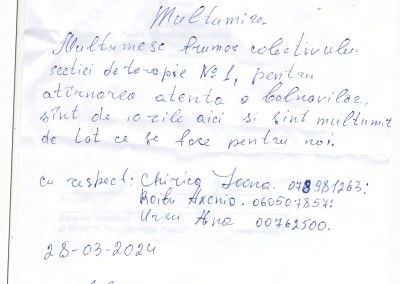 Multumire.
Multumesc frumos colectivului
sectiei de terapie № 1, pentru
atîrnarea atenta a bolnavilor,
sînt de 10 zile aici si sint multumit
de tot ce se face pentru noi.
cu respect: Chirica Ioana. 078981263:
Roibu 060507857:
Ursu Ana 00762500.
28-03-2024